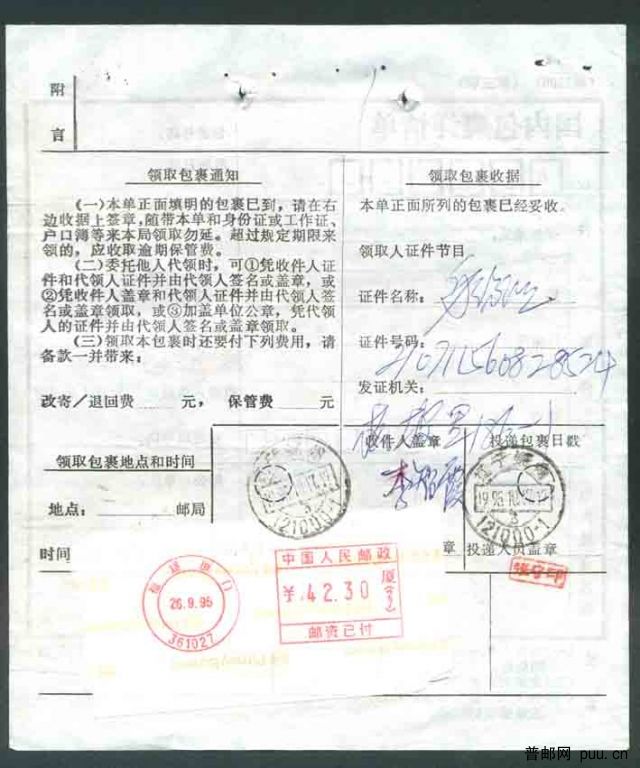 附言
领取包裹通知
(一)本单正面填明的包裹已到,请在右
边收据上签章,随带本单和身份证或工作证、
户口簿等来本局领取勿延。超过规定期限来
领的,应收取逾期保管费。
(二)委托他人代领时,可①凭收件人证
件和代领人证件并由代领人签名或盖章,或
②凭收件人盖章和代领人证件并由代领人签
名或盖章领取,或③加盖单位公章,凭代领
人的证件并由代领人签名或盖章领取。
(三)领取本包裹时还要付下列费用,请
备款一并带来:
改寄/退回费 元, 保管费 元
领取包裹收据
本单正面所列的包裹已经妥收。
领取人证件节目
证件名称:
证件号码:
210711560828524
发证机关:
领取包裹地点和时间
地点: 邮局
时间
121000-1
收件人盖章
章
投递包裹日戳
121000-1
投递人员盖章
福建厦门
26.9.95
361027
中国人民邮政
¥ 42.30
厦
邮资已付
普邮网 puu.cn